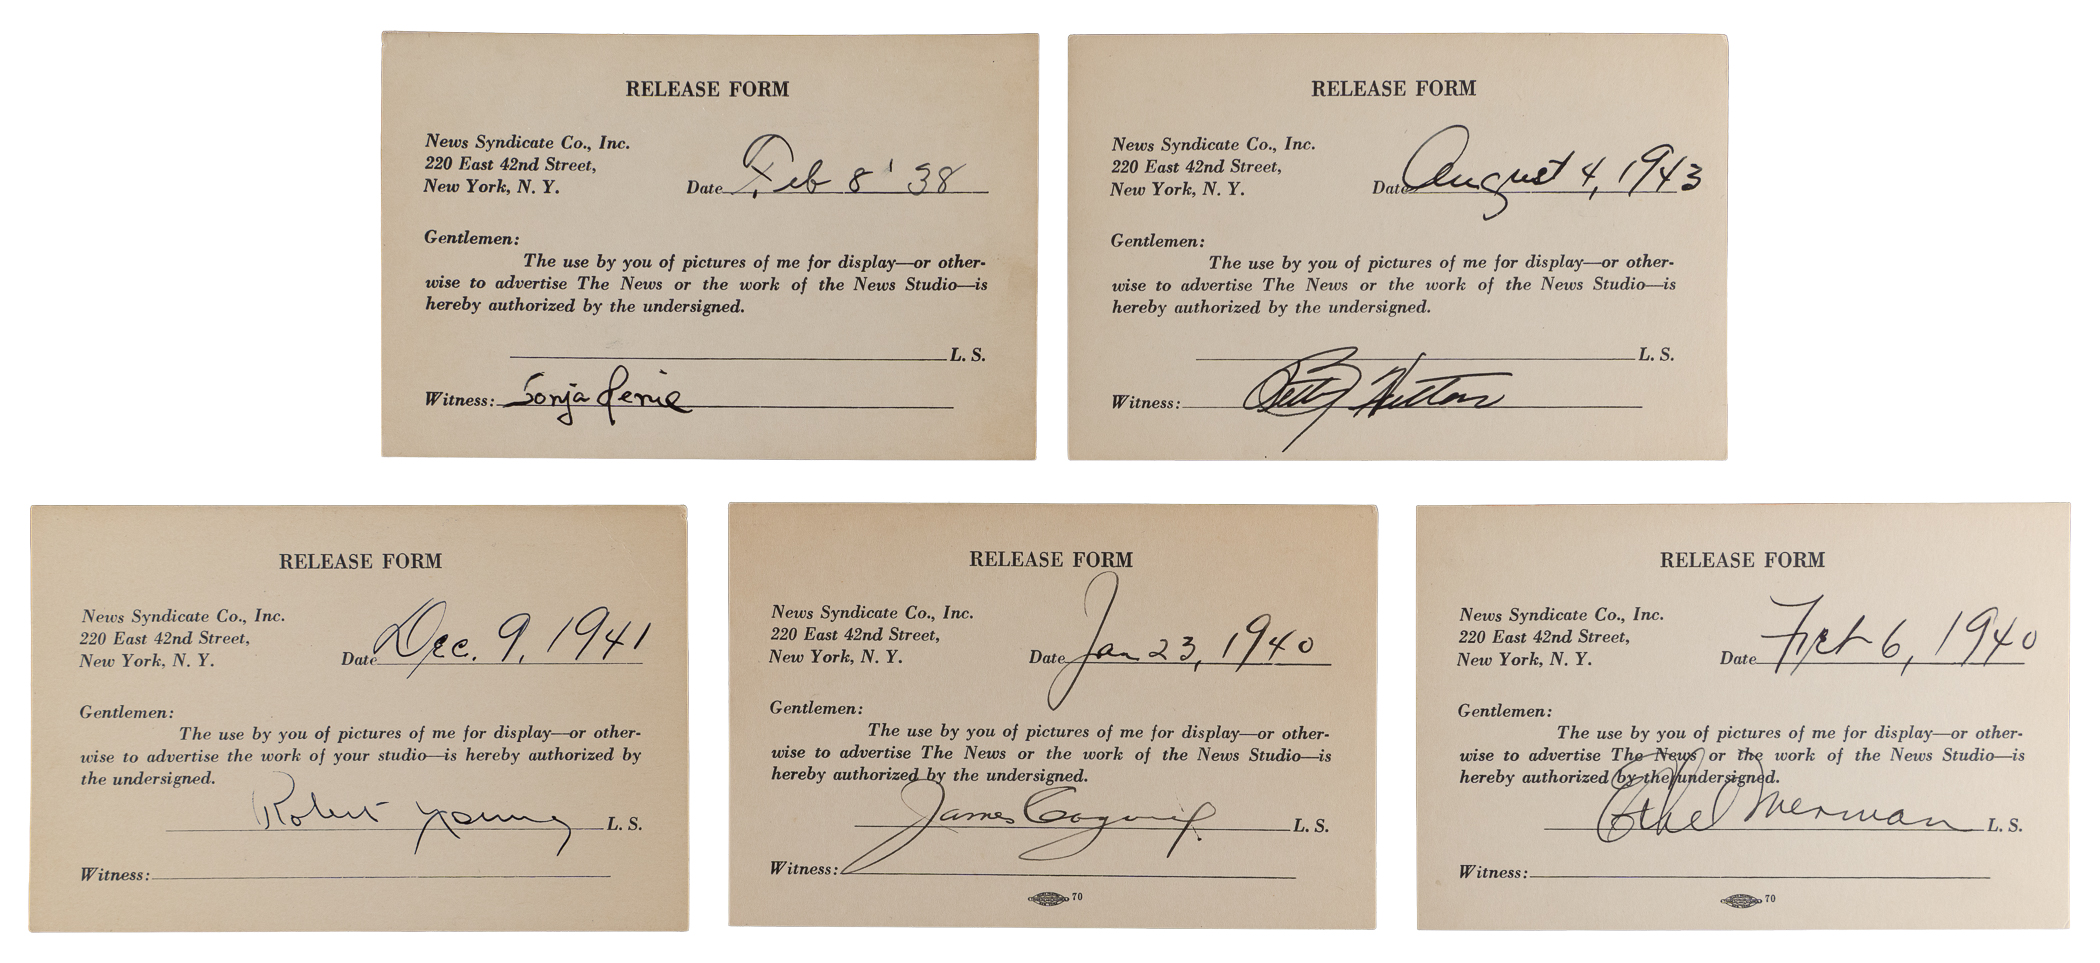 RELEASE FORM
News Syndicate Co., Inc.
220 East 42nd Street,
New York, N. Y.
Date Feb 8 '38
Gentlemen:
The use by you of pictures of me for display—or other-
wise to advertise The News or the work of the News Studio—is
hereby authorized by the undersigned.
L. S.
Witness: Sonja Henie
RELEASE FORM
News Syndicate Co., Inc.
220 East 42nd Street,
New York, N. Y.
Date August 4, 1943
Gentlemen:
The use by you of pictures of me for display—or other-
wise to advertise The News or the work of the News Studio—is
hereby authorized by the undersigned.
L. S.
Witness: Betty Hutton
RELEASE FORM
News Syndicate Co., Inc.
220 East 42nd Street,
New York, N. Y.
Date Dec. 9, 1941
Gentlemen:
The use by you of pictures of me for display—or other-
wise to advertise the work of your studio—is hereby authorized by
the undersigned.
Robert Young L. S.
Witness:
RELEASE FORM
News Syndicate Co., Inc.
220 East 42nd Street,
New York, N. Y.
Date Jan 23, 1940
Gentlemen:
The use by you of pictures of me for display—or other-
wise to advertise The News or the work of the News Studio—is
hereby authorized by the undersigned.
James Cagney L. S.
Witness:
70
RELEASE FORM
News Syndicate Co., Inc.
220 East 42nd Street,
New York, N. Y.
Date Feb 6, 1940
Gentlemen:
The use by you of pictures of me for display—or other-
wise to advertise The News or the work of the News Studio—is
hereby authorized by the undersigned.
Ethel Merman L. S.
Witness:
70